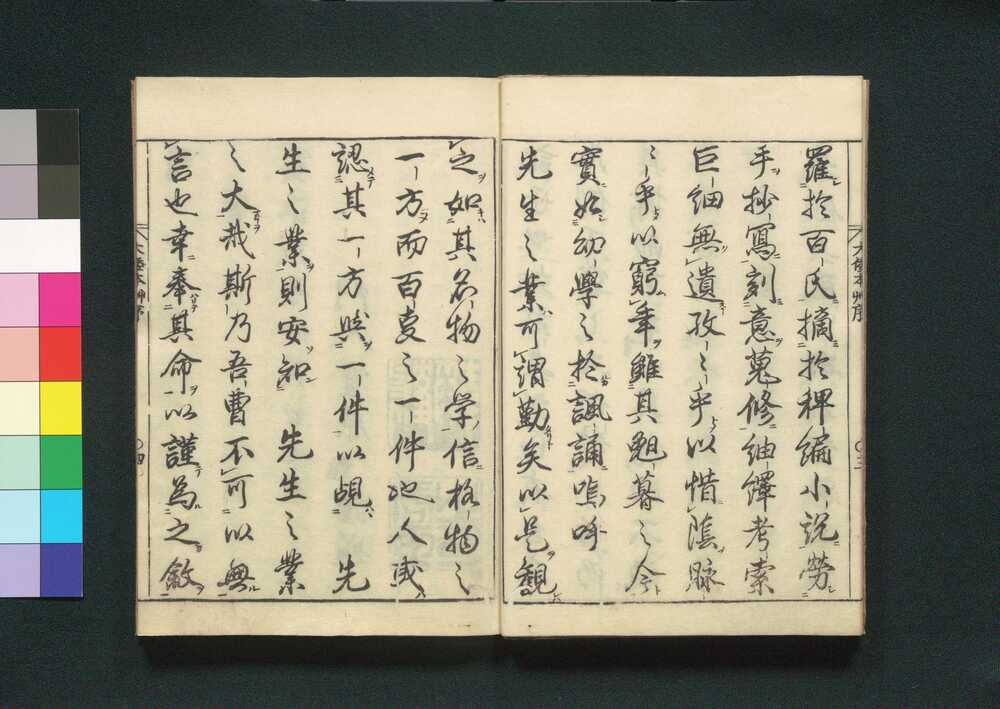 羅於百氏摘於稗編小説労
手抄寫刻意蒐修紬繹考索
巨細無遺孜〻乎以惜陰脉
〻乎以窮年雖其貌暮之今
實如幼學之於諷誦嗚呼
先生之業可謂勤矣以是観
之如其名物之学信格物之
一方而百支之一件也人或
認其一方與一件以覘 先
生之業則安知 先生之業
之大哉斯乃吾曹不可以無
言也幸奉其命以謹為之敘
大倭本艸序 〇三
大倭本艸序 〇四